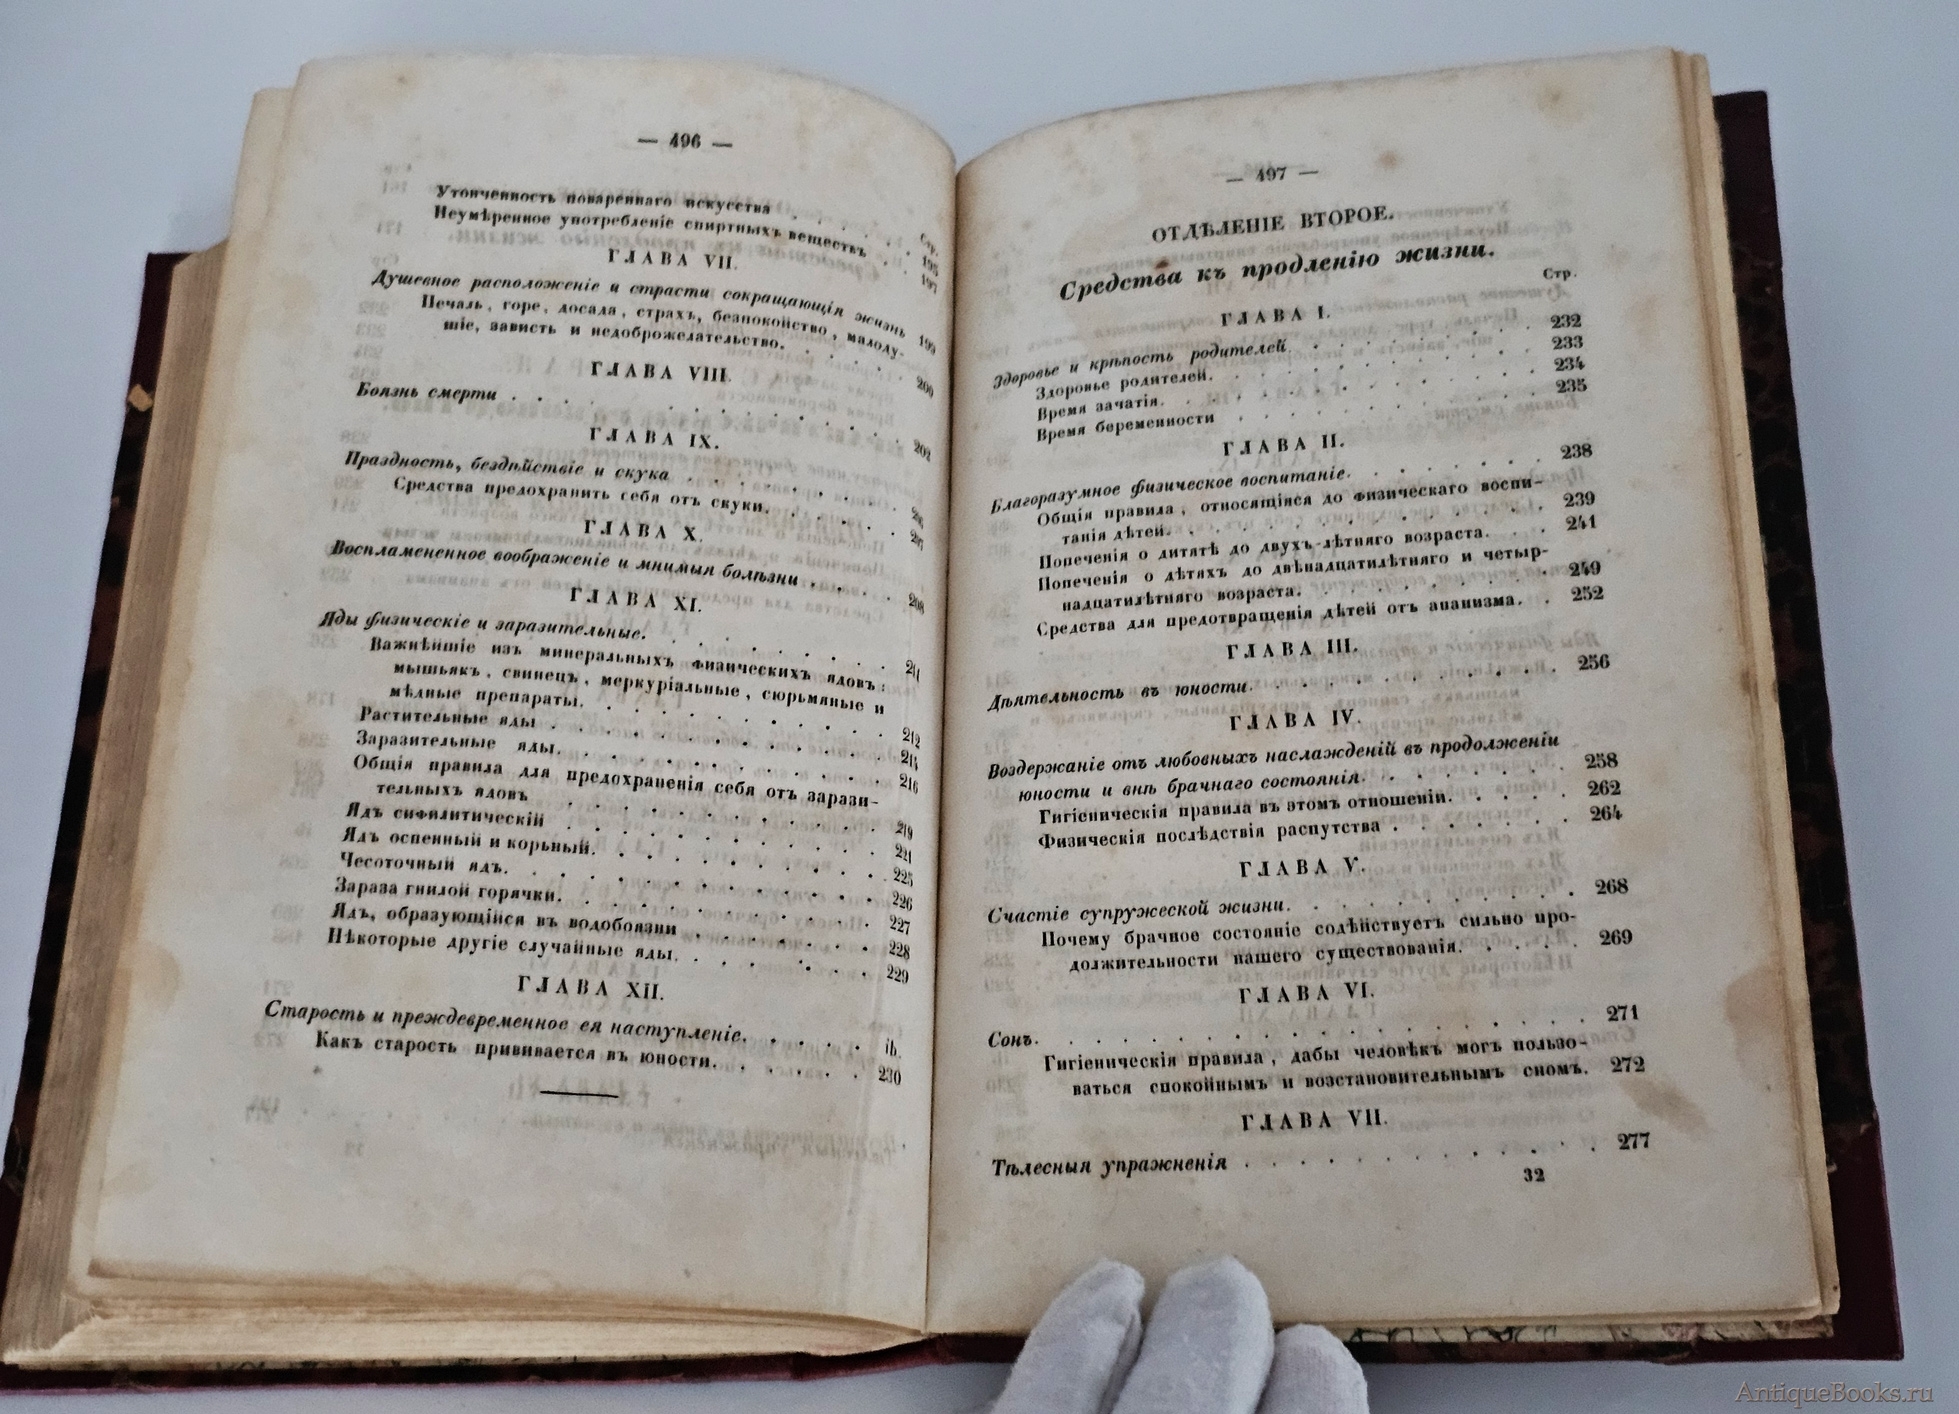 — 496 —
Стр.
Утонченность повареннаго искусства . . . . . 195
Неумѣренное употребленіе спиртныхъ веществъ . . 197
ГЛАВА VII.
Душевное расположеніе и страсти сокращающія жизнь 199
Печаль, горе, досада, страхъ, безпокойство, малоду-
шіе, зависть и недоброжелательство. . . . . . 200
ГЛАВА VIII.
Боязнь смерти . . . . . . . . . . 202
ГЛАВА IX.
Праздность, бездѣйствіе и скука . . . . . .
Средства предохранить себя отъ скуки. . . . . 207
ГЛАВА X.
Воспламененное воображеніе и мнимыя болѣзни . . . . 208
ГЛАВА XI.
Яды физическіе и заразительные. . . . . . . . 211
Важнѣйшіе изъ минеральныхъ физическихъ ядовъ:
мышьякъ, свинецъ, меркуріальные, сюрьмяные и
мѣдные препараты. . . . . . . . . 212
Растительные яды . . . . . . . . .
Заразительные яды. . . . . . . . . 216
Общія правила для предохраненія себя отъ зарази-
тельныхъ ядовъ . . . . . . . . . 219
Ядъ сифилитическій . . . . . . . . 221
Ядъ оспенный и корьный. . . . . . . . 225
Чесоточный ядъ. . . . . . . . . . 226
Зараза гнилой горячки. . . . . . . . 227
Ядъ, образующійся въ водобоязни . . . . . . 228
Нѣкоторые другіе случайные яды. . . . . . . 229
ГЛАВА XII.
Старость и преждевременное ея наступленіе. . . . . ib.
Какъ старость прививается въ юности. . . . . . 230
— 497 —
ОТДѢЛЕНІЕ ВТОРОЕ.
Средства къ продленію жизни.
Стр.
ГЛАВА I.
Здоровье и крѣпость родителей. . . . . . . . 232
Здоровье родителей. . . . . . . . . 233
Время зачатія. . . . . . . . . . 234
Время беременности . . . . . . . . 235
ГЛАВА II.
Благоразумное физическое воспитаніе. . . . . . . 238
Общія правила, относящіяся до физическаго воспи-
танія дѣтей. . . . . . . . . . 239
Попеченія о дитятѣ до двухъ-лѣтняго возраста. . . 241
Попеченія о дѣтяхъ до двѣнадцатилѣтняго и четыр-
надцатилѣтняго возраста. . . . . . . . 249
Средства для предотвращенія дѣтей отъ ананизма. . 252
ГЛАВА III.
Дѣятельность въ юности. . . . . . . . . 256
ГЛАВА IV.
Воздержаніе отъ любовныхъ наслажденій въ продолженіи
юности и внѣ брачнаго состоянія. . . . . . . 258
Гигіеническія правила въ этомъ отношеніи. . . . 262
Физическія послѣдствія распутства . . . . . . 264
ГЛАВА V.
Счастіе супружеской жизни. . . . . . . . . 268
Почему брачное состояніе содѣйствуетъ сильно про-
должительности нашего существованія. . . . . 269
ГЛАВА VI.
Сонъ. . . . . . . . . . . . . . . 271
Гигіеническія правила, дабы человѣкъ могъ пользо-
ваться спокойнымъ и возстановительнымъ сномъ. 272
ГЛАВА VII.
Тѣлесныя упражненія . . . . . . . . . . 277
32
AntiqueBooks.ru